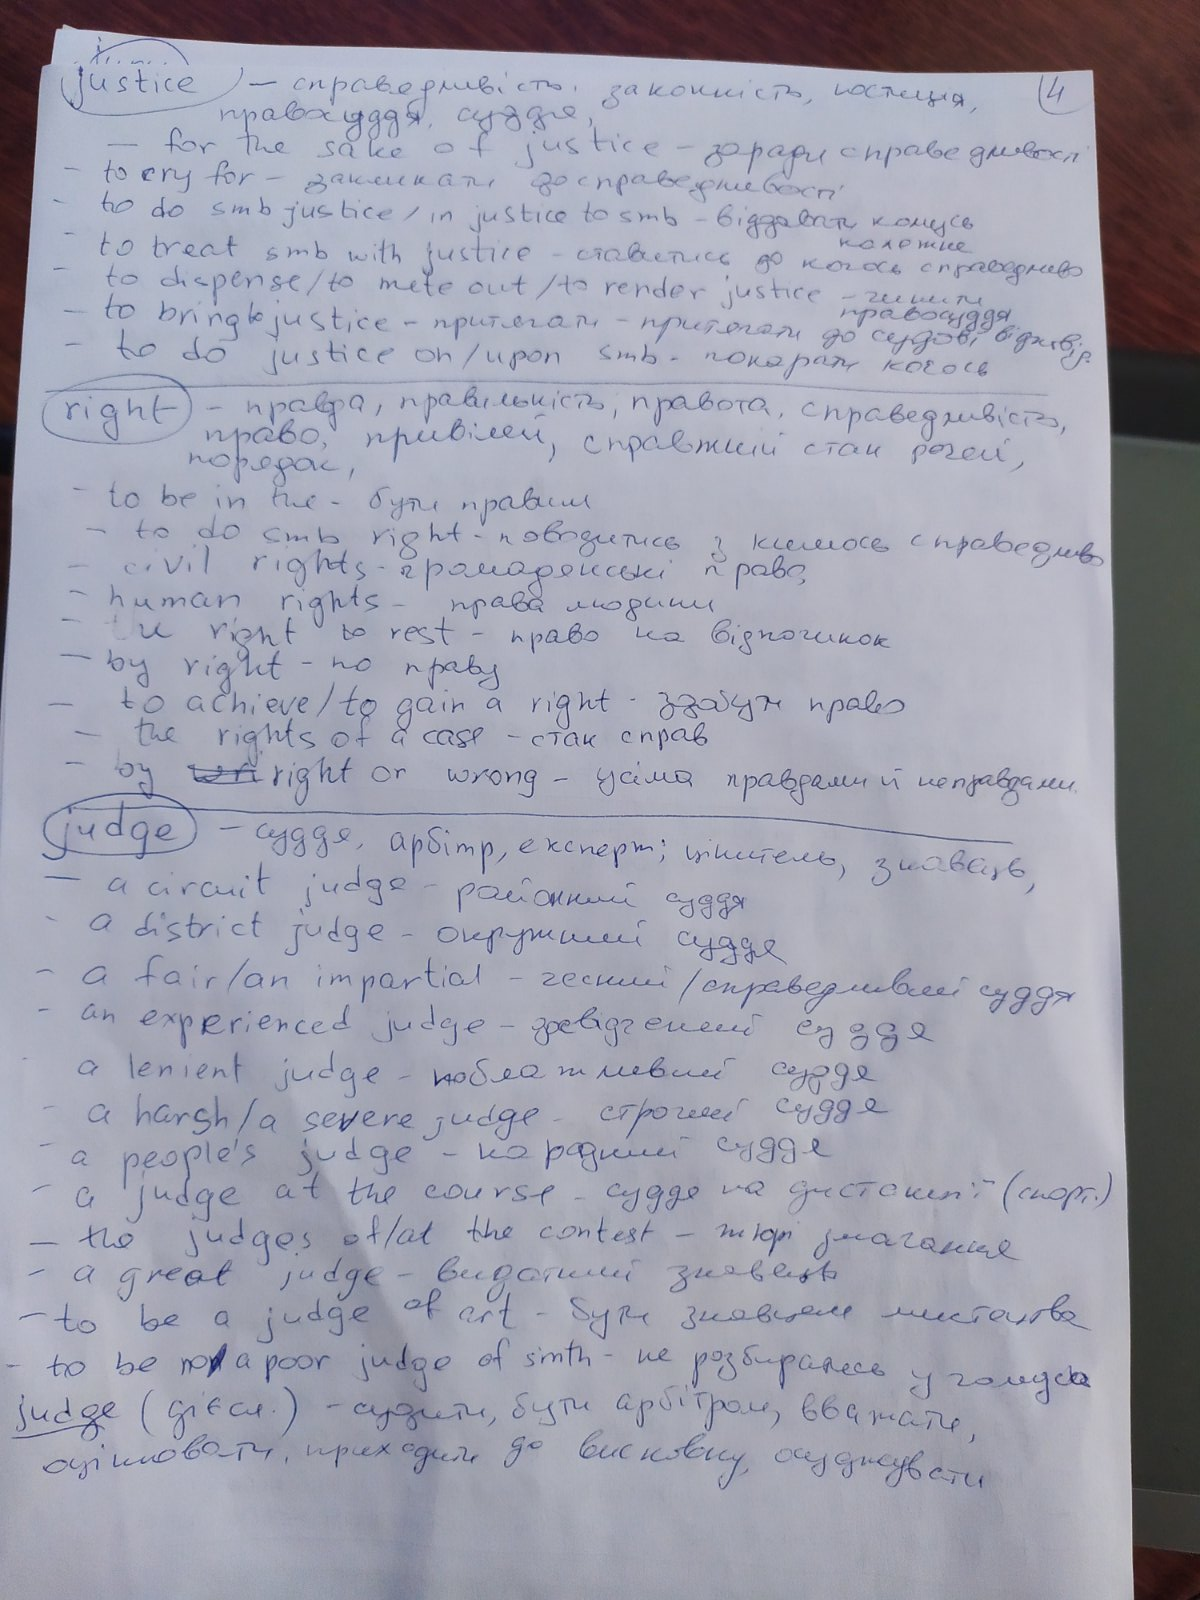 justice — справедливість, законність, юстиція, 4
правосуддя, суддя,
— for the sake of justice – заради справедливості
- to cry for – закликати до справедливості
- to do smb justice / in justice to smb – віддавати комусь
належне
- to treat smb with justice – ставитись до когось справедливо
- to dispense/to mete out/to render justice – чинити
правосуддя
- to bring to justice – притягати – притягати до судові відповід.
- to do justice on/upon smb – покарати когось
right – правда, правильність, правота, справедливість,
право, привілей, справжній стан речей,
порядок,
- to be in the – бути правим
- to do smb right – поводитись з кимось справедливо
- civil rights – громадянські права
- human rights – права людини
- the right to rest – право на відпочинок
- by right – по праву
- to achieve/to gain a right – здобути право
- the rights of a case – стан справ
- by right or wrong – усіма правдами й неправдами
judge – суддя, арбітр, експерт; цінитель, знавець,
— a circuit judge – районний суддя
- a district judge – окружний суддя
- a fair/an impartial – чесний/справедливий суддя
- an experienced judge – досвідчений суддя
a lenient judge – поблажливий суддя
- a harsh/a severe judge – строгий суддя
- a people's judge – народний суддя
- a judge at the course – суддя на дистанції (спорт.)
— the judges of/at the contest – жюрі змагання
- a great judge – видатний знавець
- to be a judge of art – бути знавцем мистецтва
- to be a poor judge of smth – не розбиратись у чомусь
judge (дієсл.) – судити, бути арбітром, вважати,
оцінювати, приходити до висновку, осуджувати